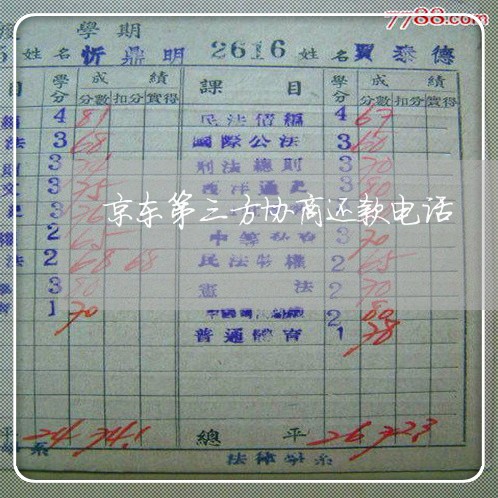 7788.com
學期
姓名 忻鼎明 2616 姓名 賈泰德
目 學分 成績 課目 學分 成績
分數 扣分 實得 分數 扣分 實得
4 81 民法債編 4 67
法 3 68 國際公法 3 60
3 刑法總則 3 70
3 75 西洋通史 3
京东第三方协商还款电话
2 65 3 70
法 2 68 68 民法物權 2 65
3 憲法 2 70
1 70 2 80
普通體育 1 78
平 24 74.1 總平 26 72.3
系 法律學系